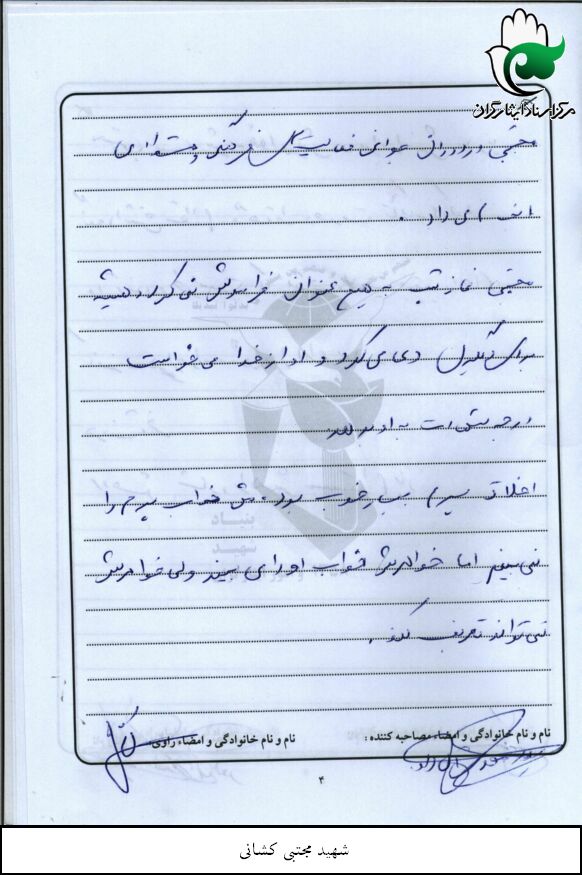 مرکز اسناد ایثارگران
مجتبی در دوران جوانی فعالیت های فرهنگی و
انجام می داد.
مجتبی نماز شب به هیچ عنوان فراموش نمی کرد و همیشه
برای دعا می کرد و او از خدا می خواست
درجه شهادت به او بدهد
اخلاق پسرم بسیار خوب بود. من خواب پسرم را
نمی بینم اما خواهرش خواب او را می بیند ولی خواهرش
نمی تواند تعریف کند.
بنیاد
شهید
نام و نام خانوادگی و امضاء مصاحبه کننده :
نام و نام خانوادگی و امضاء راوی:
۴
شهید مجتبی کشانی